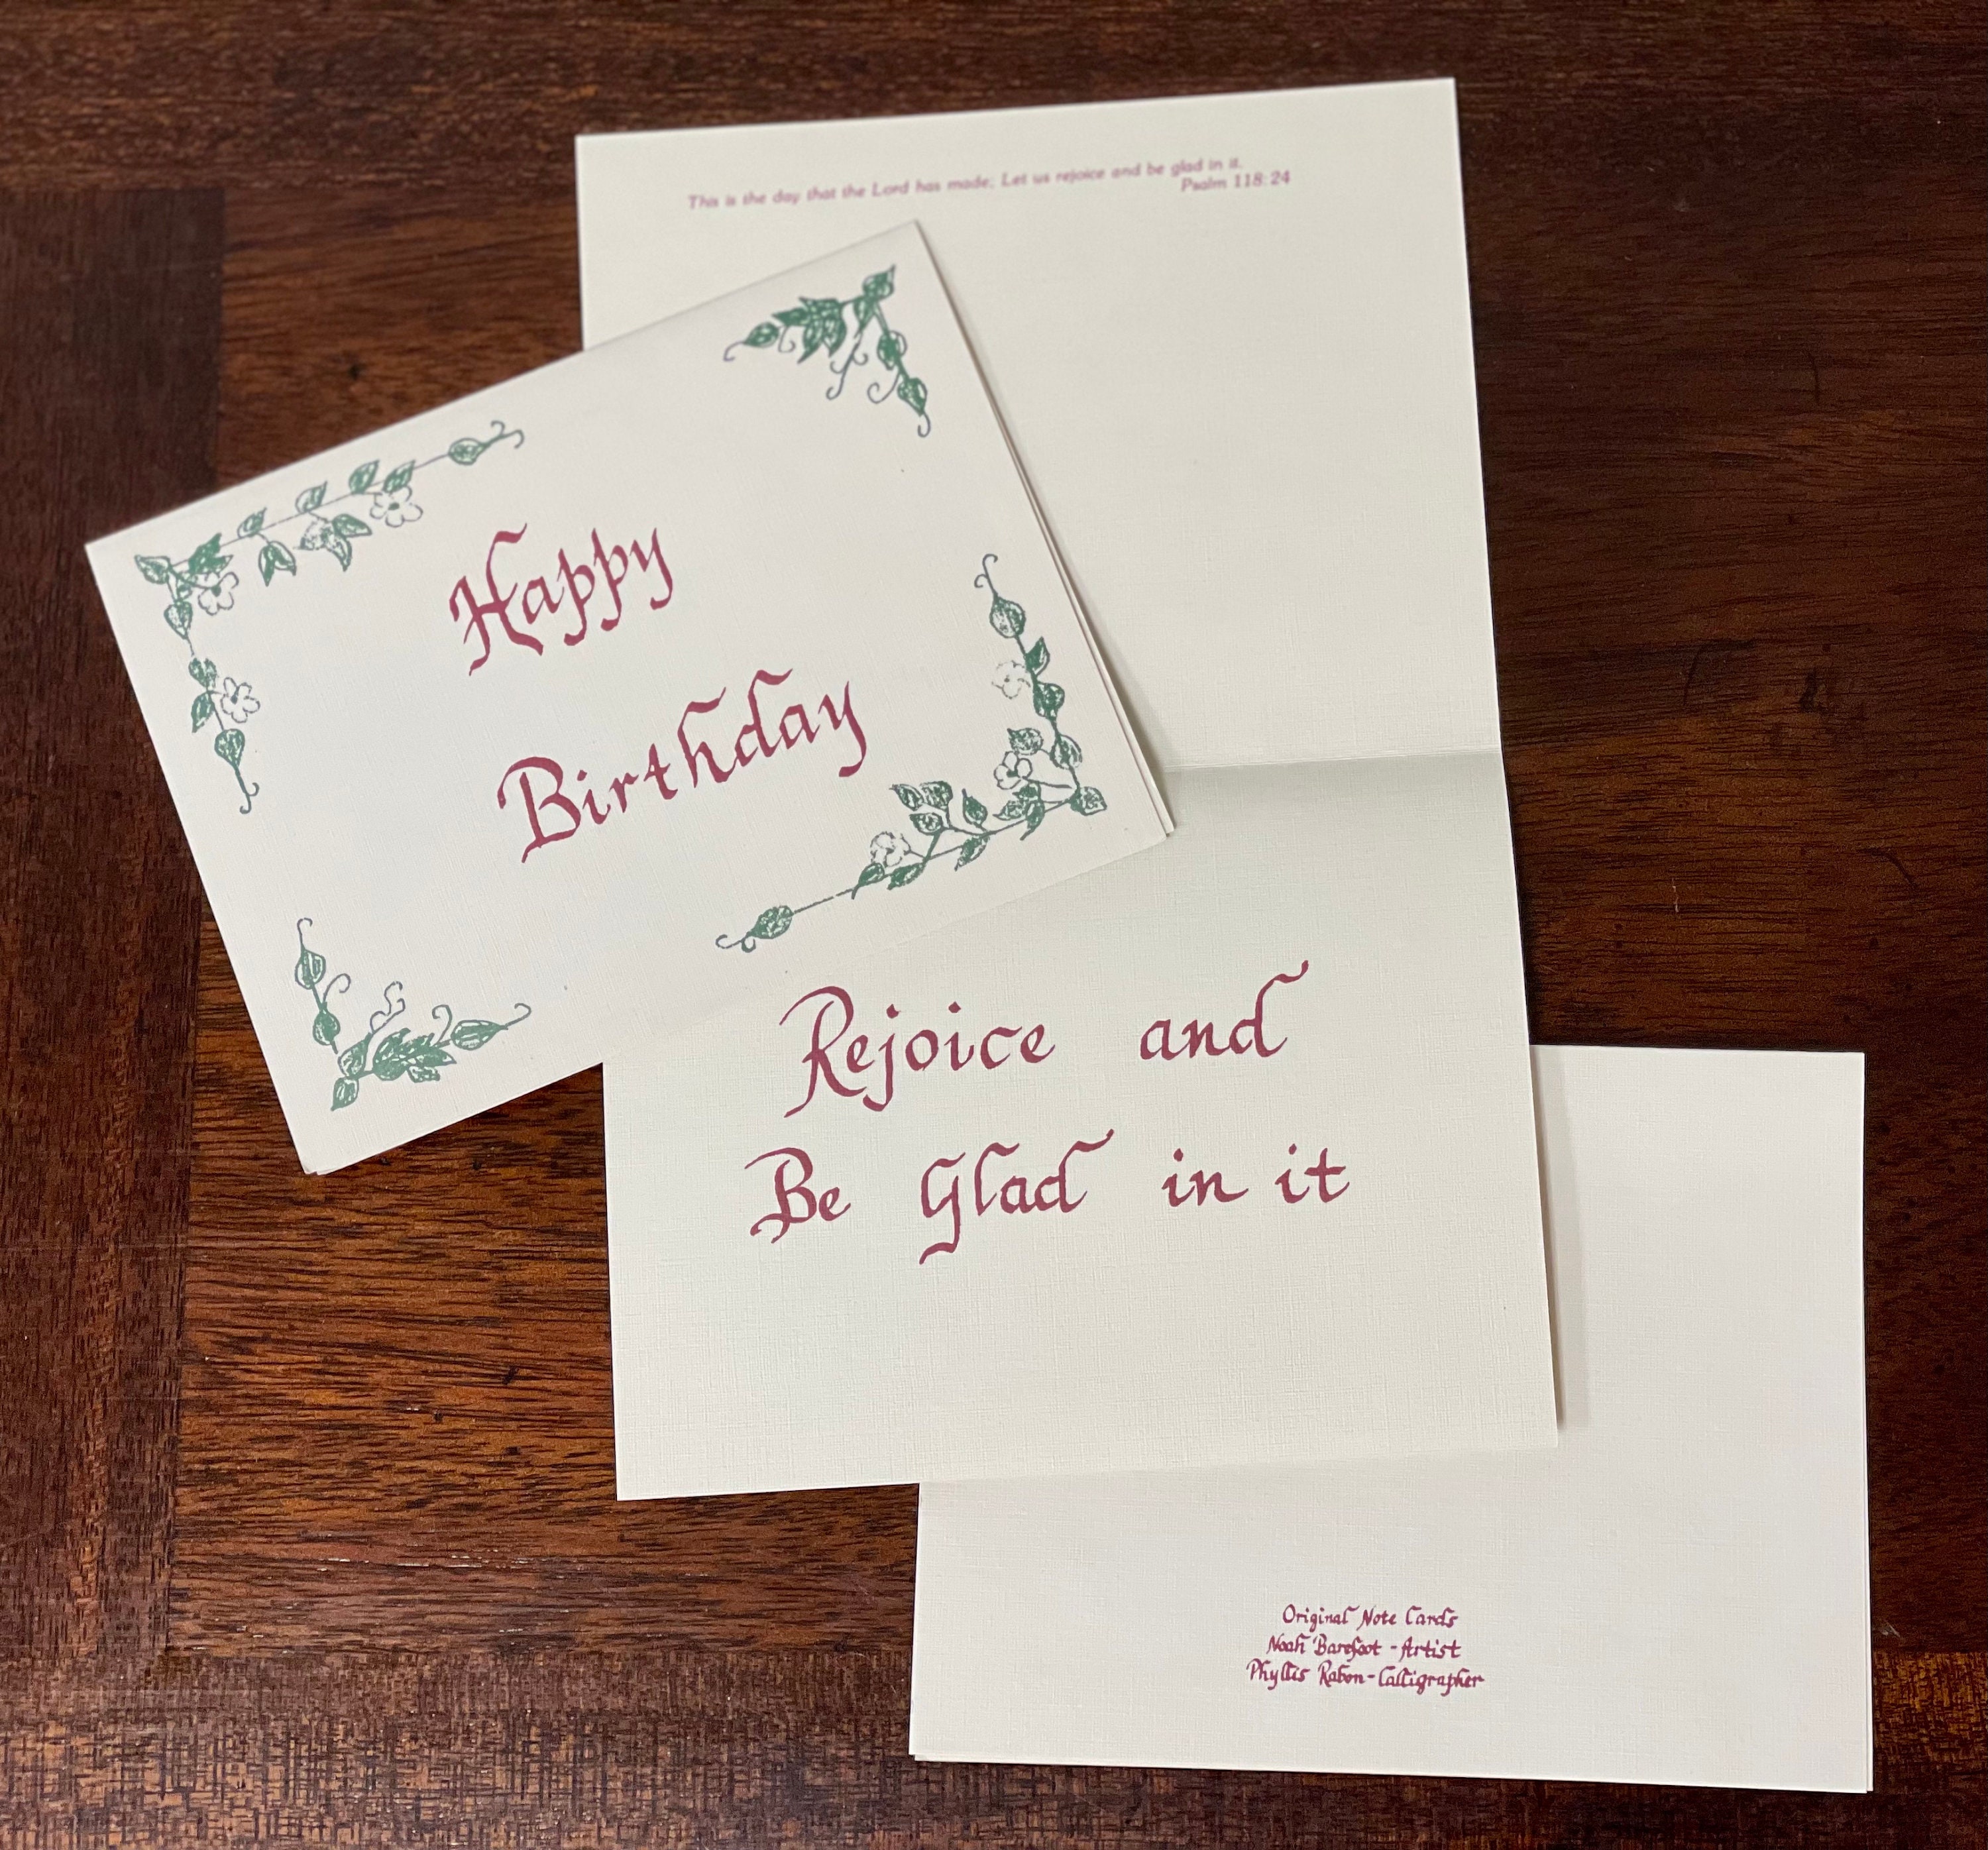 This is the day that the Lord has made; Let us rejoice and be glad in it.
Psalm 118:24
Happy
Birthday
Rejoice and
Be Glad in it
Original Note Cards
Noah Barefoot - Artist
Phyllis Rabon - Calligrapher